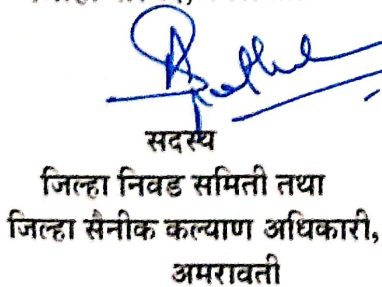 सदस्य
जिल्हा निवड समिती तथा
जिल्हा सैनीक कल्याण अधिकारी,
अमरावती